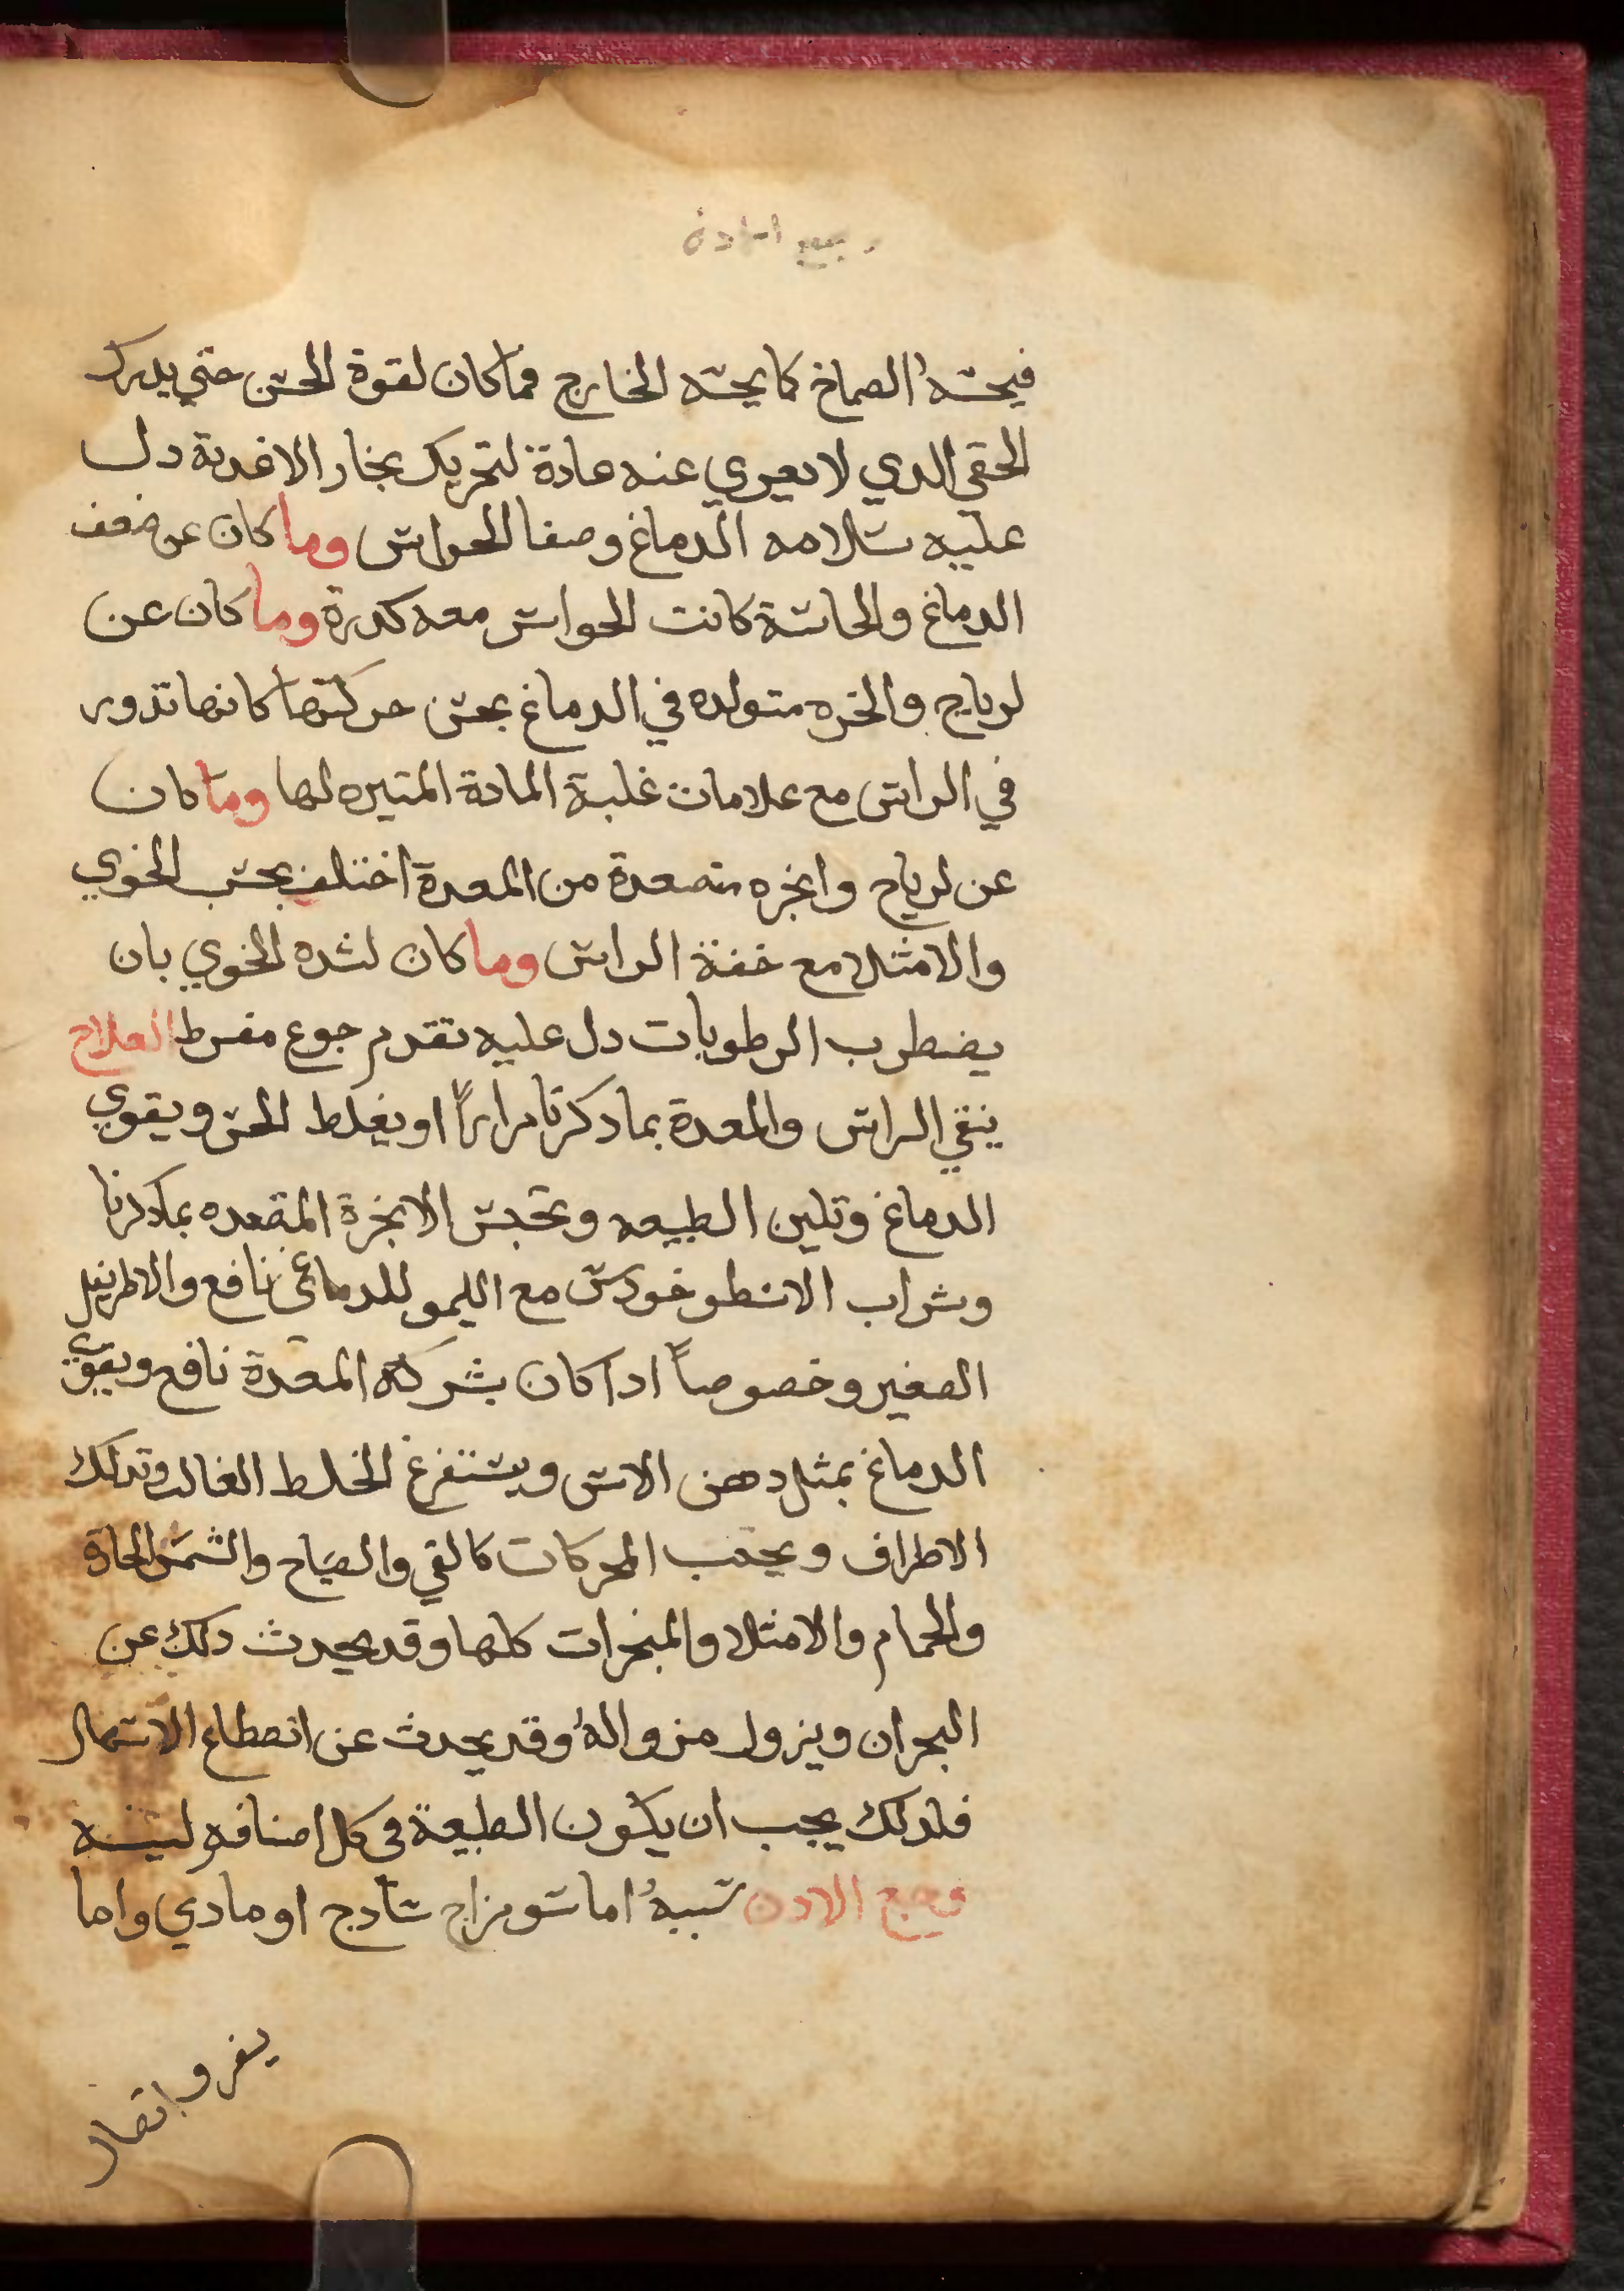 فيحسه الصماخ كما يحسه الخارج فما كان لقوة الحس حتي يدرك
الحقي الدي لا يعري عنه عادة لتحريك بخار الاغدية دل
عليه سلامه الدماغ وصفا الحواس وما كان عن ضعف
الدماغ والحاسة كانت الحواس معه كدرة وما كان عن
لرياح والخره متولده في الدماغ بحس حركتها كانها تدور
في الراس مع علامات غلبة المادة المتيره لها وما كان
عن لرياح وابخره متصعدة من المعدة اختلف بحسب الخوي
والامثلا مع خفة الراس وما كان لشده الخوي بان
يضطرب الرطوبات دل عليه تقدم جوع مفرط العلاج
ينقي الراس والمعدة بما دكرنا مرارًا او يغلط الحس ويقوي
الدماغ وتلين الطبيعه وتحبس الابخرة المتصعده بما دكرنا
وشراب الاسطوخودس مع الليمو للدماغي نافع والاطريفل
الصغير وخصوصًا ادا كان بشركة المعدة نافع ويقوي
الدماغ بمثل دهن الاس ويستفرغ الخلط الغالب وتدلك
الاطراف ويجتنب المحركات كالقي والصياح والشمس الحارة
والحمام والامثلا والمبخرات كلها وقد يحدث دلك عن
البحران ويزول بزواله وقد يحدث عن انقطاع الاسهال
فلدلك يجب ان يكون الطبيعة في كل اصنافه لينه
وجع الادن سببه اما سو مزاج سادج او مادي واما